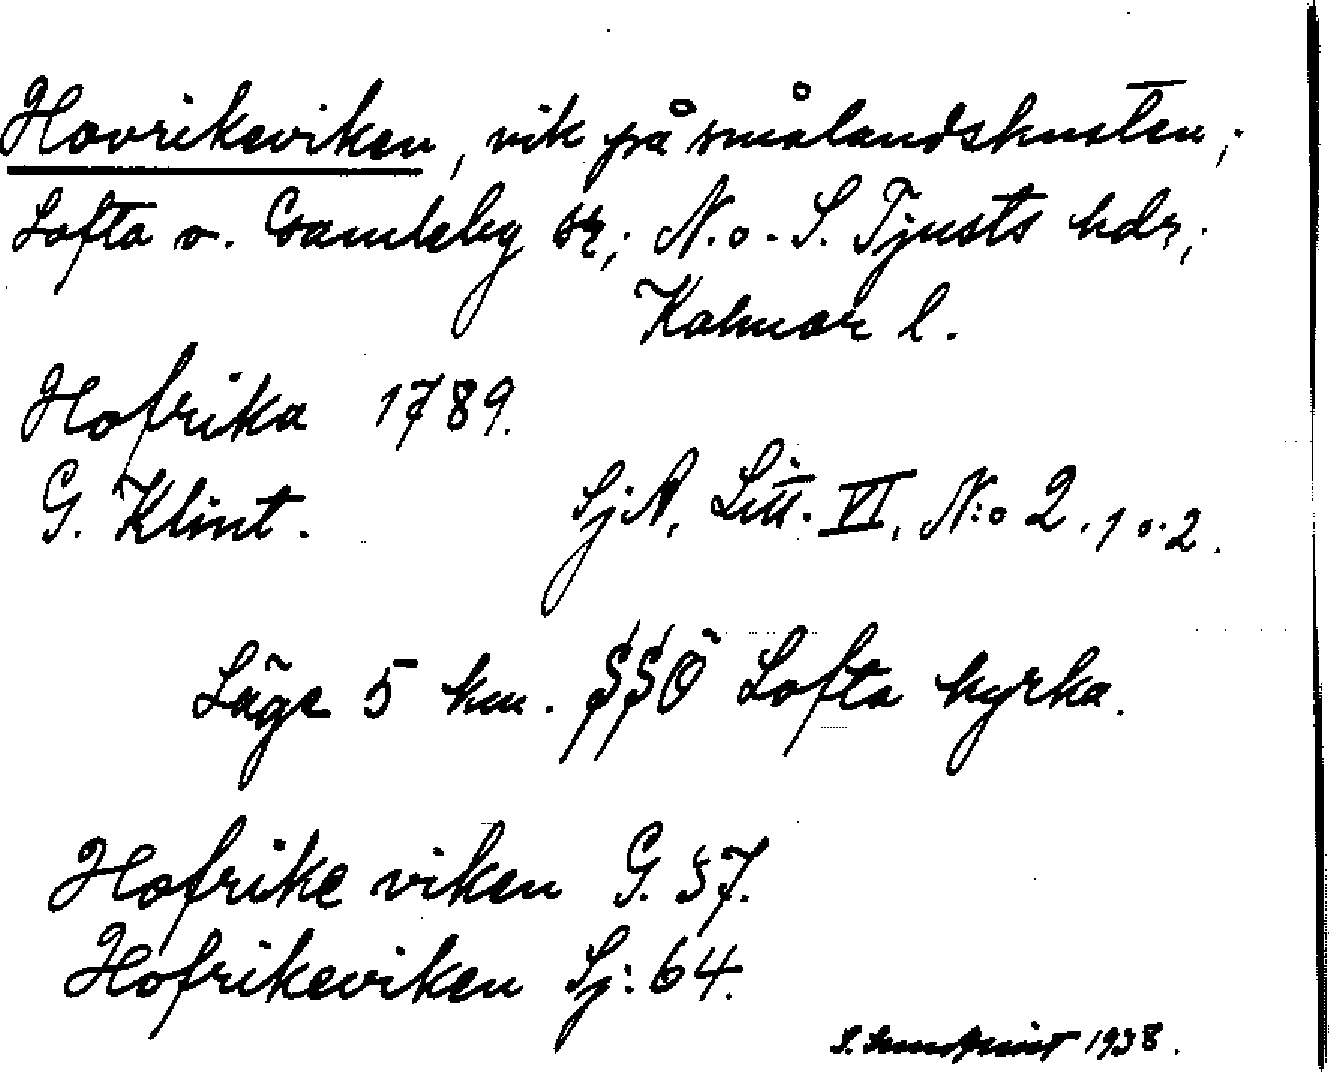 Hovrikeviken, vik på smålandskusten;
Lofta o. Gamleby sr; N. o. S. Tjusts hdr;
Kalmar l.
Hofrika 1789.
G. Klint. SjA, Litt. VI, N:o 2. 1 o. 2.
Läge 5 km. SSÖ Lofta kyrka.
Hofrike viken G. 57.
Hofrikeviken Sj: 64.
S. 1938.